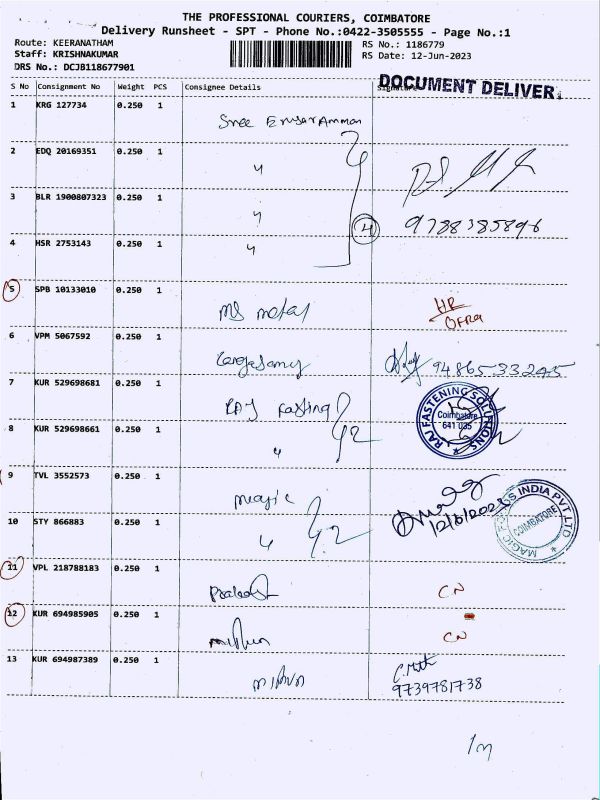 THE PROFESSIONAL COURIERS, COIMBATORE
Delivery Runsheet - SPT - Phone No.:0422-3505555 - Page No.:1
Route: KEERANATHAM
RS No.: 1186779
Staff: KRISHNAKUMAR
RS Date: 12-Jun-2023
DRS No.: DCJB118677901
DOCUMENT DELIVER
S No Consignment No Weight PCS Consignee Details
1 KRG 127734 0.250 1
Sree
2 EDQ 20169351 0.250 1
3 BLR 1900807323 0.250 1
4 9788385896
4 HSR 2753143 0.250 1
5 SPB 10133010 0.250 1
MS metal
6 VPM 5067592 0.250 1
9486533245
7 KUR 529698681 0.250 1
RAJ
8 KUR 529698661 0.250 1
RAJ FASTENING SOLUTIONS
Coimbatore
641 035
9 TVL 3552573 0.250 1
Magic
10 STY 866883 0.250 1
INDIA PVT LTD
COIMBATORE
MAGIC
11 VPL 218788183 0.250 1
Prakash CN
12 KUR 694985905 0.250 1
Mithun CN
13 KUR 694987389 0.250 1
Mithun
9739781738